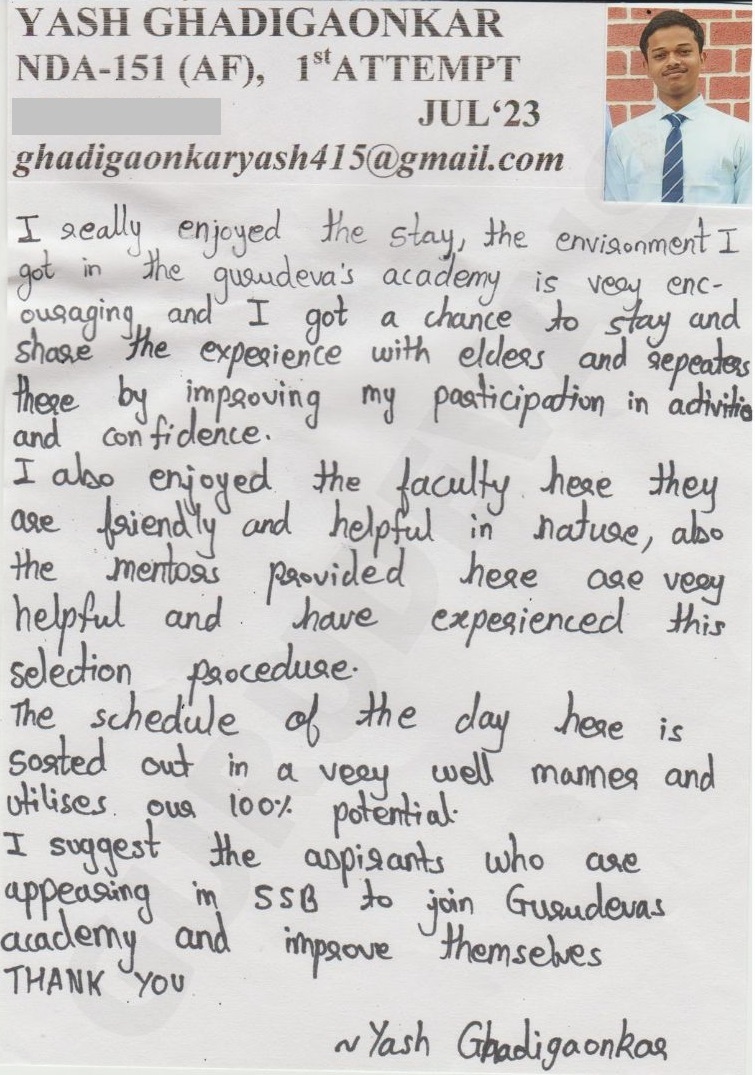 YASH GHADIGAONKAR
NDA-151 (AF), 1st ATTEMPT
JUL‘23
ghadigaonkaryash415@gmail.com
I really enjoyed the stay, the environment I
got in the gurudeva's academy is very enc-
ouraging and I got a chance to stay and
share the experience with elders and repeaters
there by improving my participation in activitie
and confidence.
I also enjoyed the faculty here they
are friendly and helpful in nature, also
the mentors provided here are very
helpful and have experienced this
selection procedure.
The schedule of the day here is
sorted out in a very well manner and
utilises our 100% potential.
I suggest the aspirants who are
appearing in SSB to join Gurudevas
academy and improve themselves
THANK YOU
~Yash Ghadigaonkar